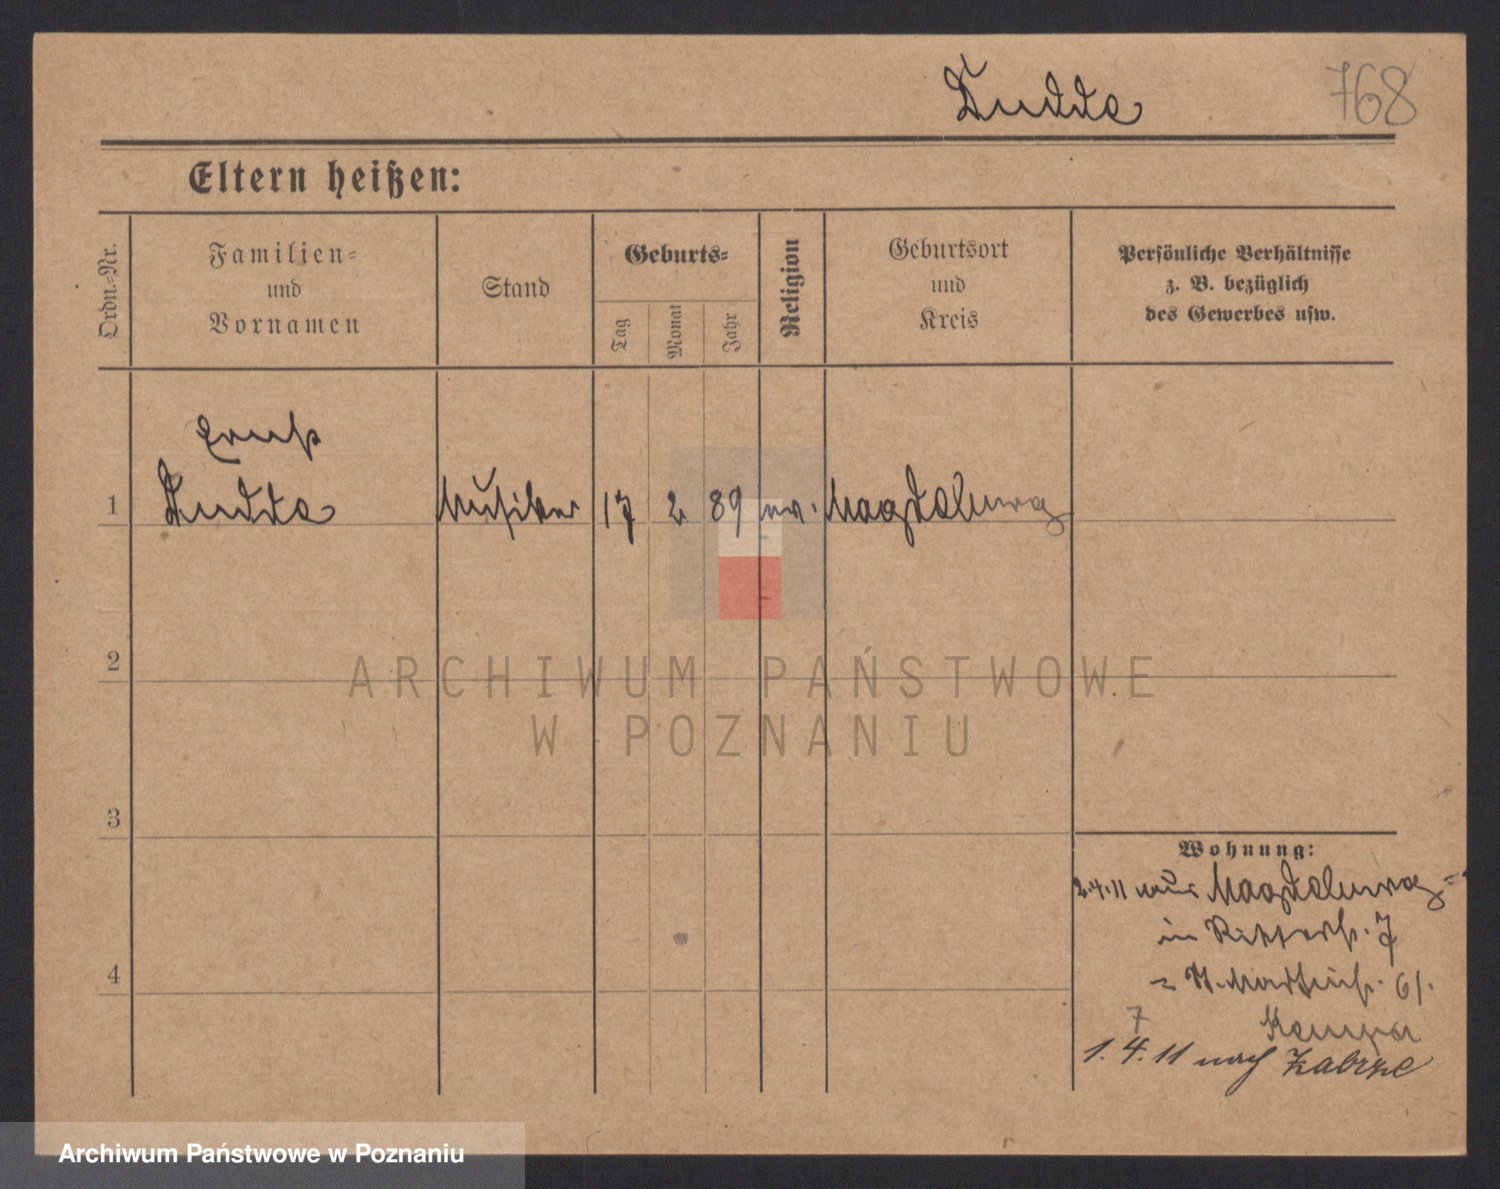 Dudda 768
Eltern heißen:
Ordn.-Nr. Familien- und Vornamen Stand Geburts- Tag Monat Jahr Religion Geburtsort und Kreis Persönliche Verhältnisse z. B. bezüglich des Gewerbes usw.
Ernst
1 Dudda Musiker 17 2 89 ev. Magdeburg
2
ARCHIWUM PAŃSTWOWE
W POZNANIU
3
Wohnung:
2.4.11 aus Magdeburg
in Ritterst. 7
St. Martinst. 61.
4
7
1. 4. 11 nach Zabrze
Archiwum Państwowe w Poznaniu